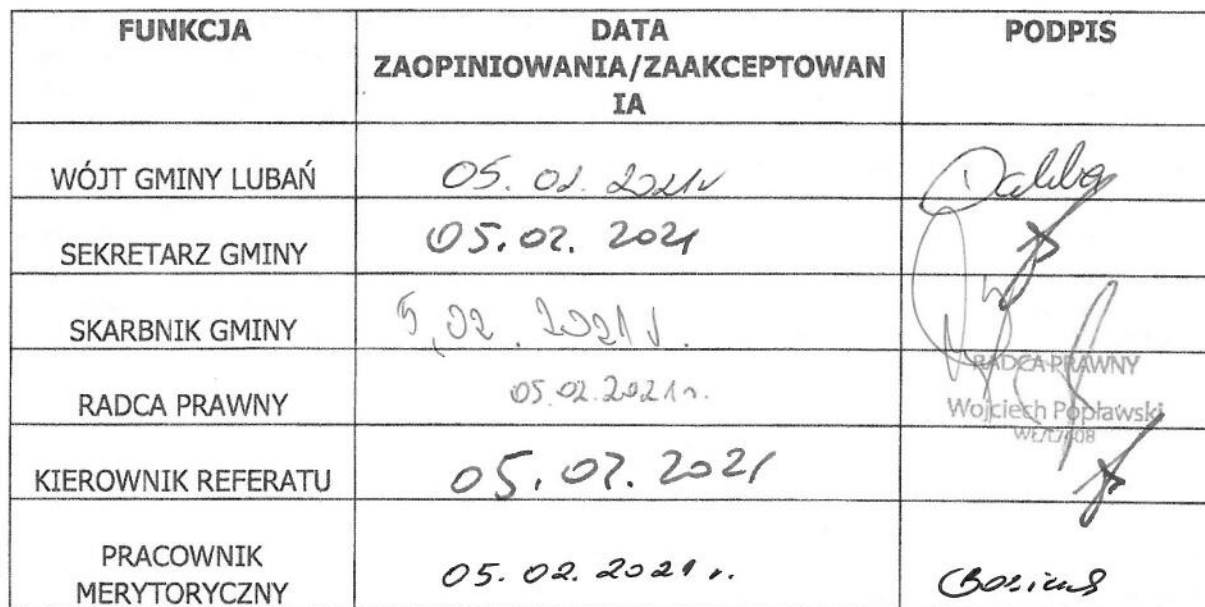 FUNKCJA
DATA
ZAOPINIOWANIA/ZAAKCEPTOWAN
IA
PODPIS
WÓJT GMINY LUBAŃ
05. 02. 2021r
SEKRETARZ GMINY
05.02. 2021
SKARBNIK GMINY
5,02. 2021 r.
RADCA PRAWNY
05.02.2021r.
RADCA PRAWNY
Wojciech Popławski
KIEROWNIK REFERATU
05.02.2021
PRACOWNIK
MERYTORYCZNY
05. 02. 2021 r.